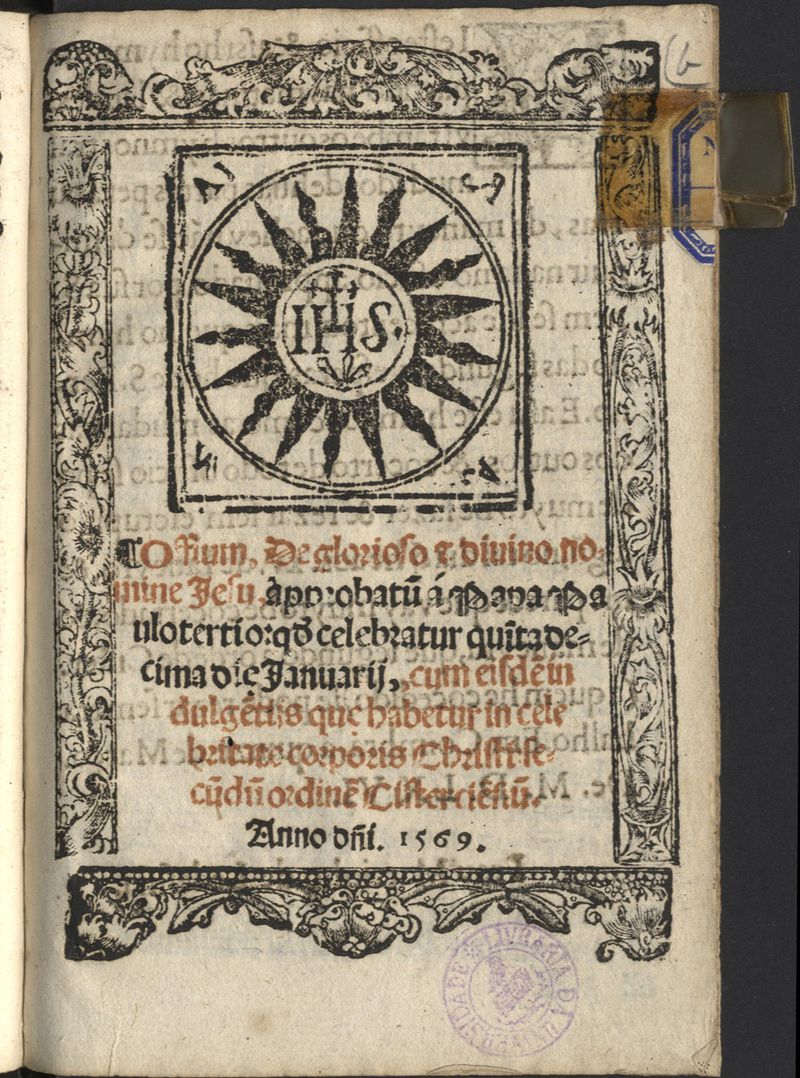 IHS.
¶Officium, De glorioso ⁊ divino no-
mine Jesu, approbatũ á Papa Pa
ulo tertio: qđ celebratur quĩta de-
cima die Januarij, cum eisdẽ in
dulgẽtiis quę habẽtur in cele
britate corporis Christi se-
cũdũ ordinẽ Cisterciẽsiũ.
Anno dñi. 1569.
LIVRARIA DA UNIVERSIDADE